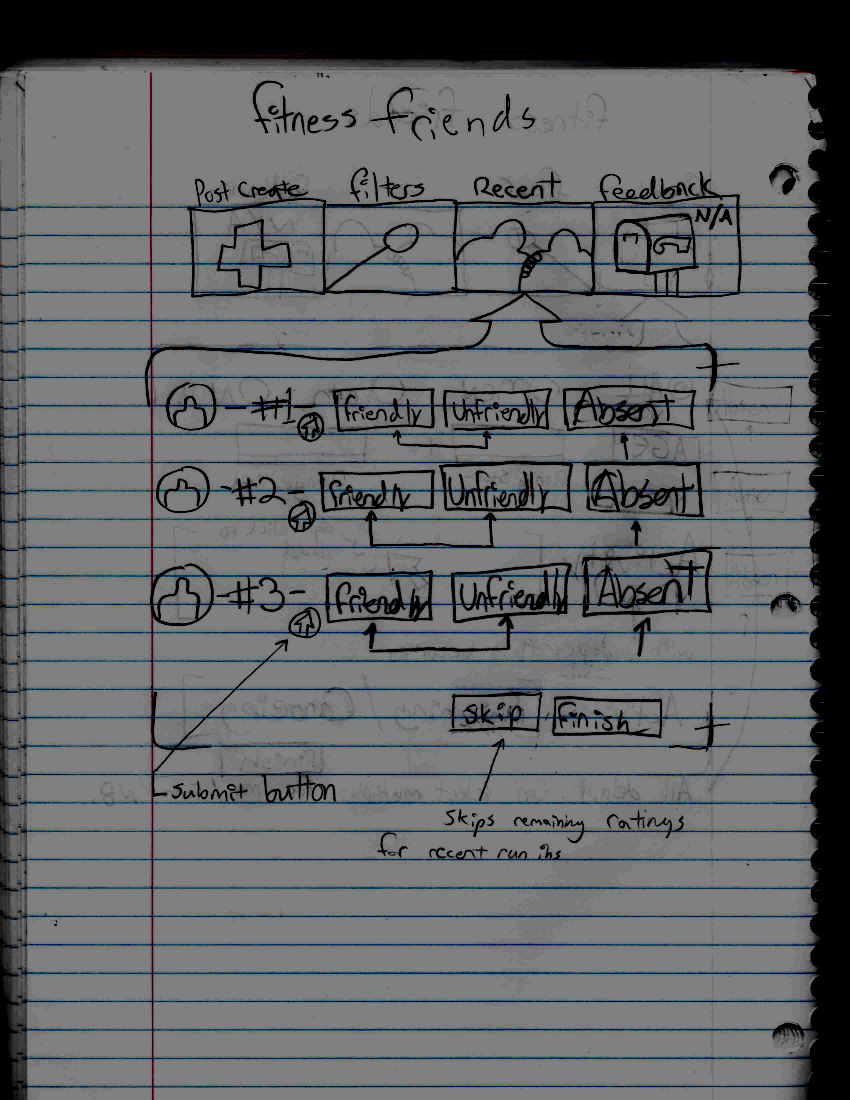 fitness friends
Post Create filters Recent feedback
N/A
#1 friendly Unfriendly Absent
#2 friendly Unfriendly Absent
#3 friendly Unfriendly Absent
Skip finish
submit button
Skips remaining ratings
for recent run ins